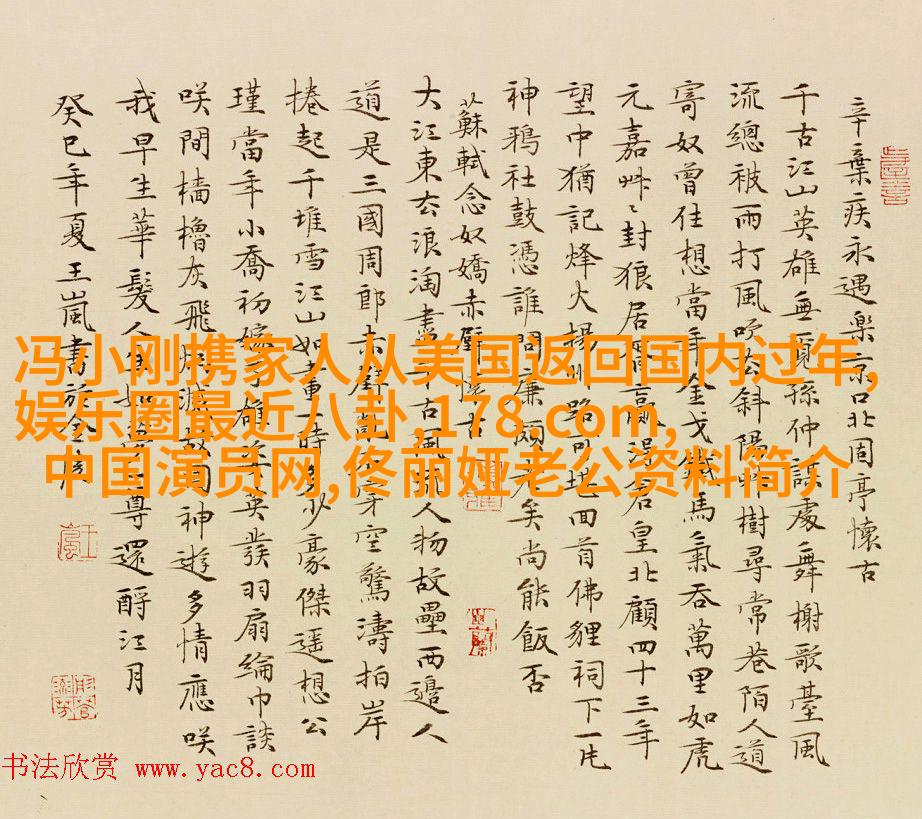 辛棄疾永遇樂京口北固亭懷古
千古江山英雄無覓孫仲謀處舞榭歌臺風
流總被雨打風吹去斜陽艸樹尋常巷陌人道
寄奴曾住想當年金戈鐵馬氣吞萬里如虎
元嘉艸〻封狼居胥贏得倉皇北顧四十三年
望中猶記烽火揚州路可堪回首佛貍祠下一片
神鴉社鼓憑誰問廉頗老矣尚能飯否
蘇軾念奴嬌赤壁懷古
大江東去浪淘盡千古風流人物故壘西邊人
道是三國周郎赤壁亂石穿空驚濤拍岸
捲起千堆雪江山如畫一時多少豪傑遙想公
瑾當年小喬初嫁了雄姿英發羽扇綸巾談
咲間檣櫓灰飛煙滅故國神遊多情應咲
我早生華髮人生如夢一尊還酹江月
癸巳年夏王嵐書於金
冯小刚携家人从美国返回国内过年,
娱乐圈最近八卦,178,com,
中国演员网,佟丽娅老公资料简介
书法欣赏 www.yac8.com